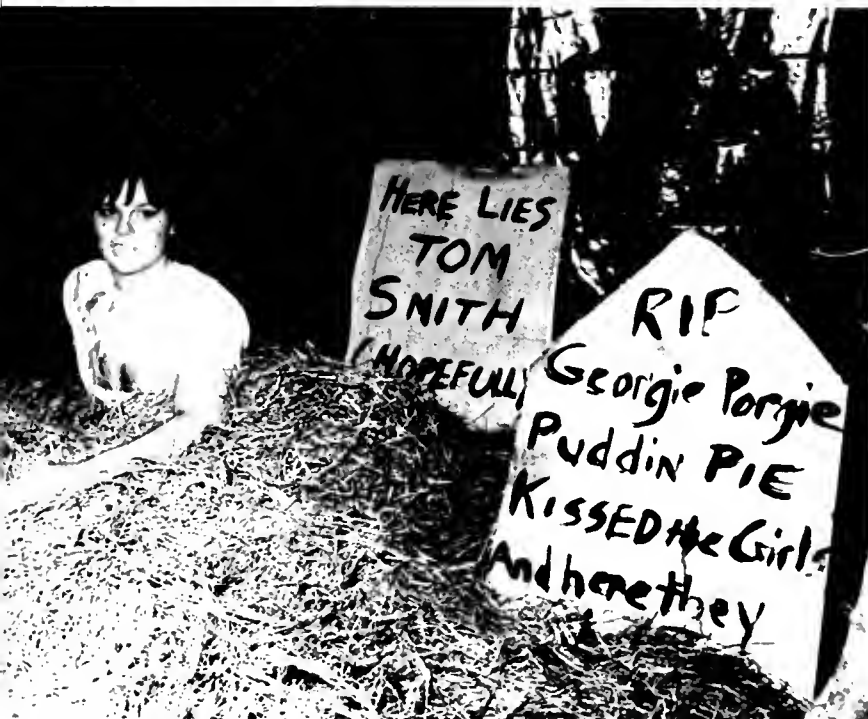 HERE LIES
TOM
SMITH
(HOPEFULLY
RIP
Georgie Porgie
Puddin PIE
KISSED the Girls
And here they